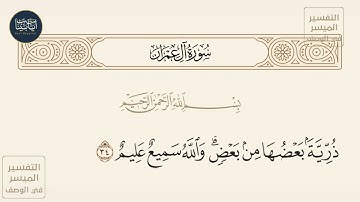 سُورَةُ آلِ عِمْرَانَ
التفسير
الميسر
في الوصف
بِسْمِ اللَّهِ الرَّحْمَٰنِ الرَّحِيمِ
ذُرِّيَّةًۢ بَعْضُهَا مِنۢ بَعْضٍۗ وَٱللَّهُ سَمِيعٌ عَلِيمٌ ٣٤
التفسير
الميسر
في الوصف